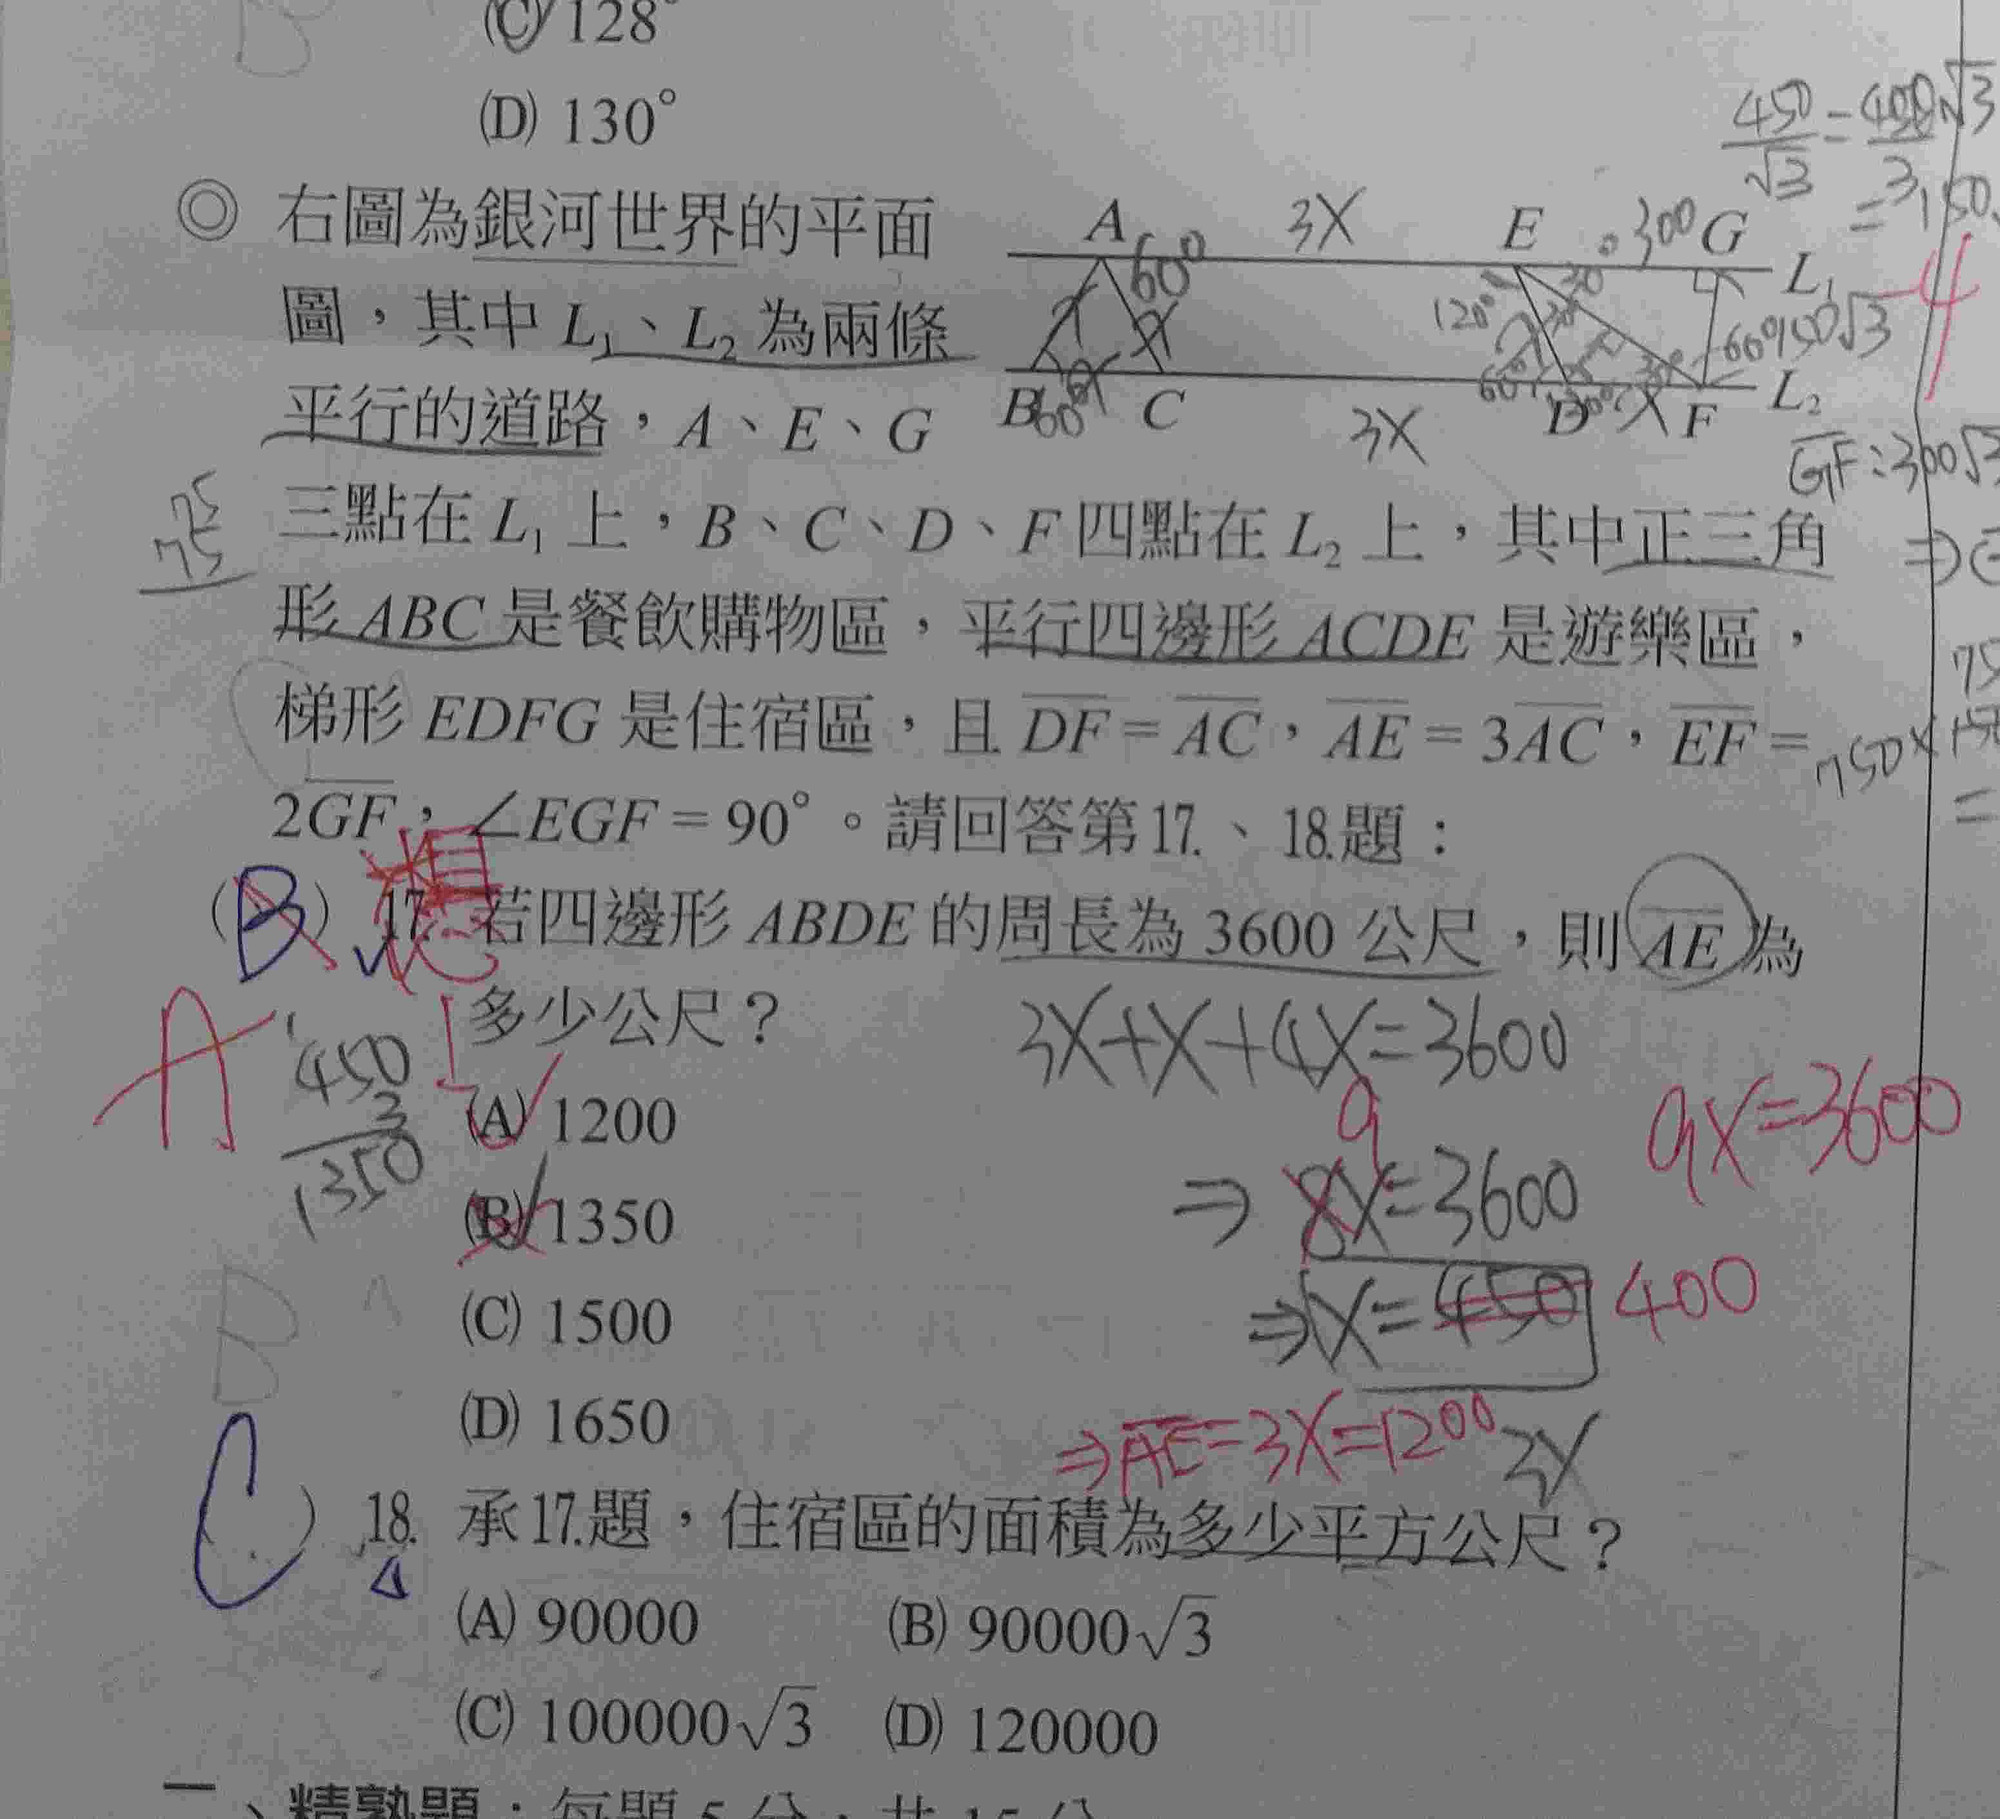 (C) 128°
(D) 130°
450/√3 = 450√3/3
= 150
◎ 右圖為銀河世界的平面
A 3X E 300 G
60° L₁
圖，其中 L₁、L₂ 為兩條
120° 60° 150√3
平行的道路，A、E、G
B 60° C 3X D X F L₂
GF：300√3
三點在 L₁ 上，B、C、D、F 四點在 L₂ 上，其中正三角
75
75
形 ABC 是餐飲購物區，平行四邊形 ACDE 是遊樂區，
梯形 EDFG 是住宿區，且 DF = AC，AE = 3AC，EF =
750×150
2GF，∠EGF = 90°。請回答第17.、18.題：
(B) 17. 若四邊形 ABDE 的周長為 3600 公尺，則 AE 為
多少公尺？
3X+X+4X=3600
A
450
3
1350
(A) 1200
9X=3600
(B) 1350
⇒ 8X=3600
9
(C) 1500
⇒ X=450 400
B
(D) 1650
⇒ AE=3X=1200
(C) 18. 承17.題，住宿區的面積為多少平方公尺？
(A) 90000 (B) 90000√3
(C) 100000√3 (D) 120000
二、精熟題：每題 5 分，共 15 分